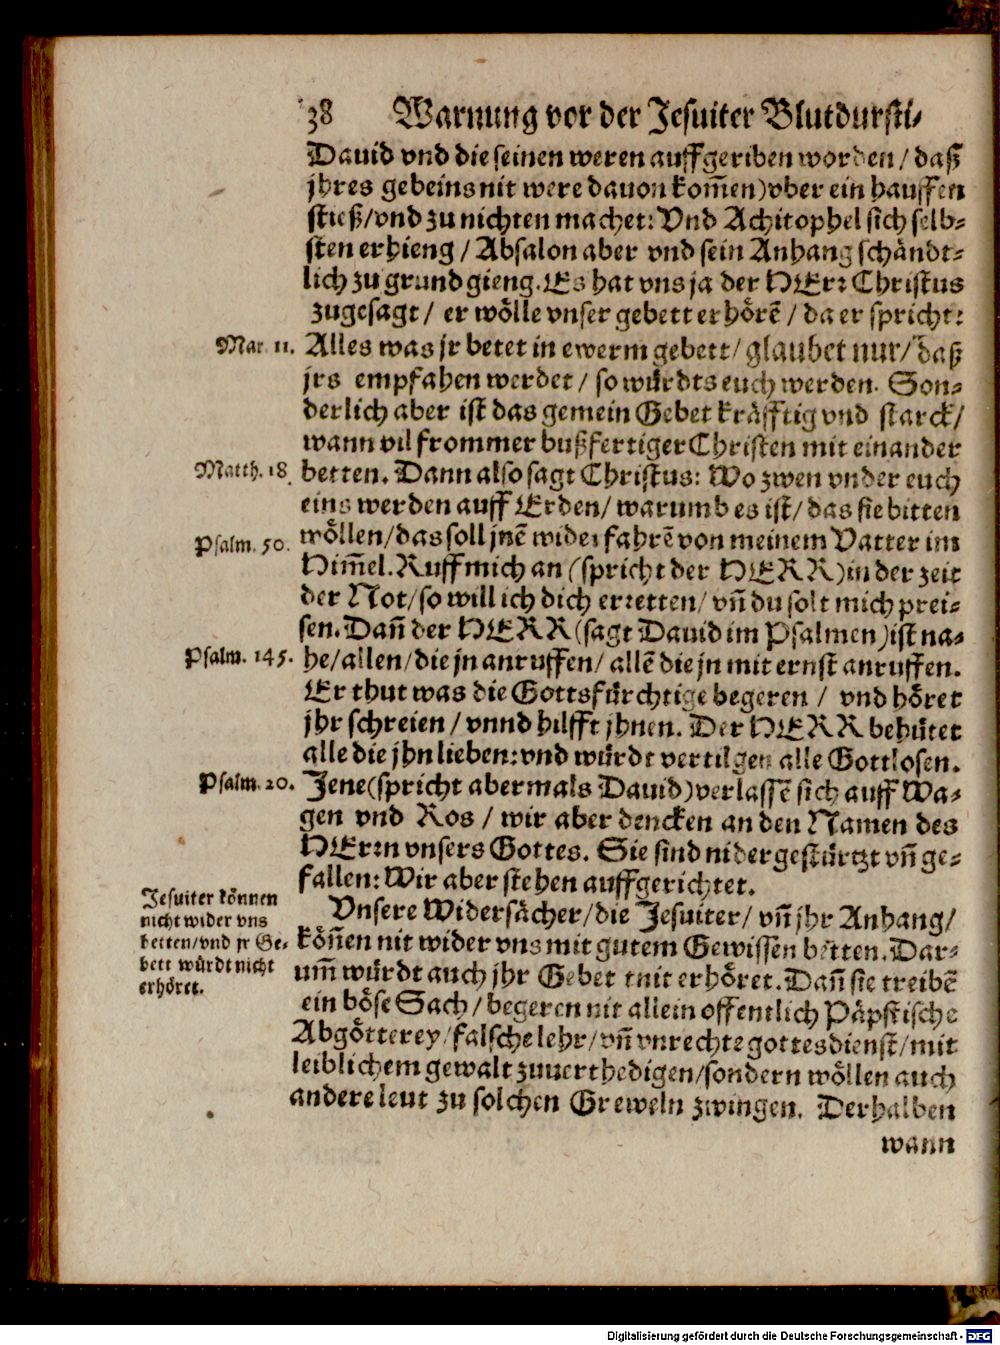 38 Warnung vor der Jesuiter Blutdursti⸗
Dauid vnd die seinen weren auffgeriben worden / daß
jhres gebeins nit were dauon kom̃en) vber ein hauffen
stieß / vnd zu nichten machet: Vnd Achitophel sich selb⸗
sten erhieng / Absalon aber vnd sein Anhang schändt⸗
lich zu grund gieng. Es hat vns ja der HErꝛ Christus
zugesagt / er wölle vnser gebett erhörẽ / da er spricht:
Mar. 11. Alles was jr betet in ewerm gebett / glaubet nur / daß
jrs empfahen werdet / so würdts euch werden. Son⸗
derlich aber ist das gemein Gebet kräfftig vnd starck /
wann vil frommer bußfertiger Christen mit einander
Matth. 18. betten. Dann also sagt Christus: Wo zwen vnder euch
eins werden auff Erden / warumb es ist / das sie bitten
Psalm. 50. wöllen / das soll jnẽ widerfahrẽ von meinem Vatter im
Him̃el. Ruff mich an (spricht der HERR) in der zeit
der Not / so will ich dich erꝛetten / vñ du solt mich prei⸗
sen. Dañ der HERR (sagt Dauid im Psalmen) ist na⸗
Psalm. 145. he / allen / die jn anruffen / allẽ die jn mit ernst anruffen.
Er thut was die Gottsfürchtige begeren / vnd höret
jhr schreien / vnnd hilfft jhnen. Der HERR behütet
alle die jhn lieben: vnd würdt vertilgen alle Gottlosen.
Psalm. 20. Jene (spricht abermals Dauid) verlassẽ sich auff Wa⸗
gen vnd Ros / wir aber dencken an den Namen des
HErꝛn vnsers Gottes. Sie sind nidergestürtzt vñ ge⸗
fallen: Wir aber stehen auffgerichtet.
Jesuiter können
nicht wider vns
betten / vnd jr Ge⸗
bett würdt nicht
erhöret.
Vnsere Widersächer / die Jesuiter / vñ jhr Anhang /
köñen nit wider vns mit gutem Gewissen betten. Dar⸗
um̃ würdt auch jhr Gebet nit erhöret. Dañ sie treibẽ
ein böse Sach / begeren nit allein offentlich Päpstische
Abgötterey / falsche lehr / vñ vnrechte gottesdienst / mit
leiblichem gewalt zuuerthedigen / sondern wöllen auch
andere leut zu solchen Greweln zwingen. Derhalben
wann
Digitalisierung gefördert durch die Deutsche Forschungsgemeinschaft - DFG